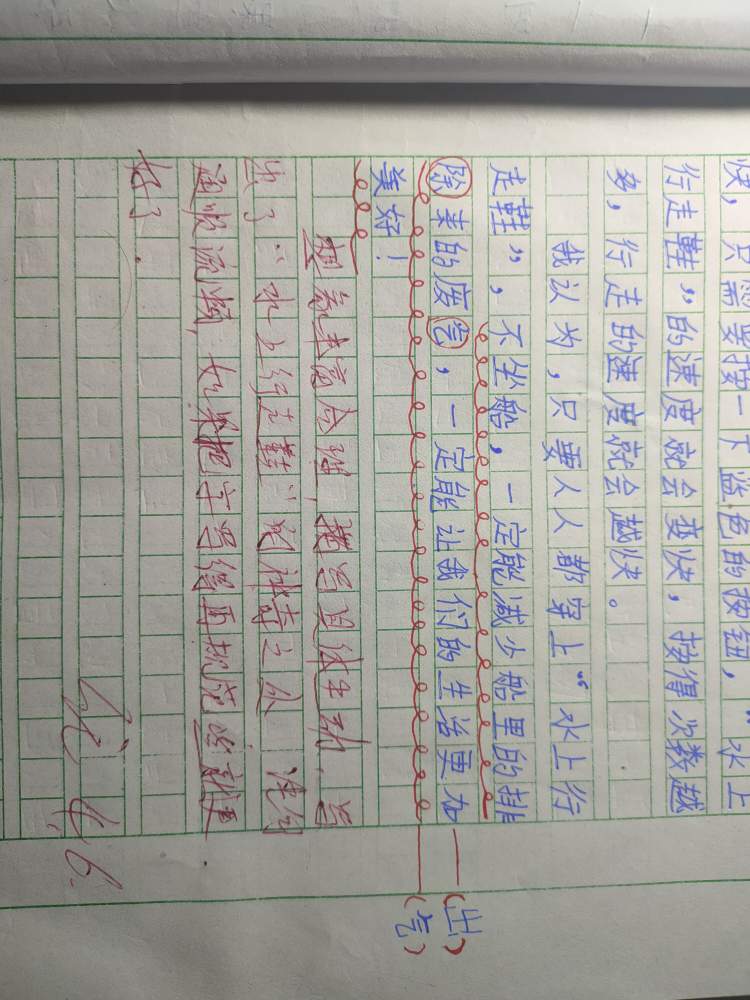 快，只需要按一下蓝色的按钮，“水上
行走鞋”的速度就会变快，按得次数越
多，行走的速度就会越快。
我认为，只要人人都穿上“水上行
走鞋”，不坐船，一定能减少船里的排
除来的废气，一定能让我们的生活更加
美好！
（出）
（气）
想象丰富合理，描写具体生动，写
出了“水上行走鞋”的神奇之处 语句
通顺流畅，如果把字写得再规范些就更
好了.
优